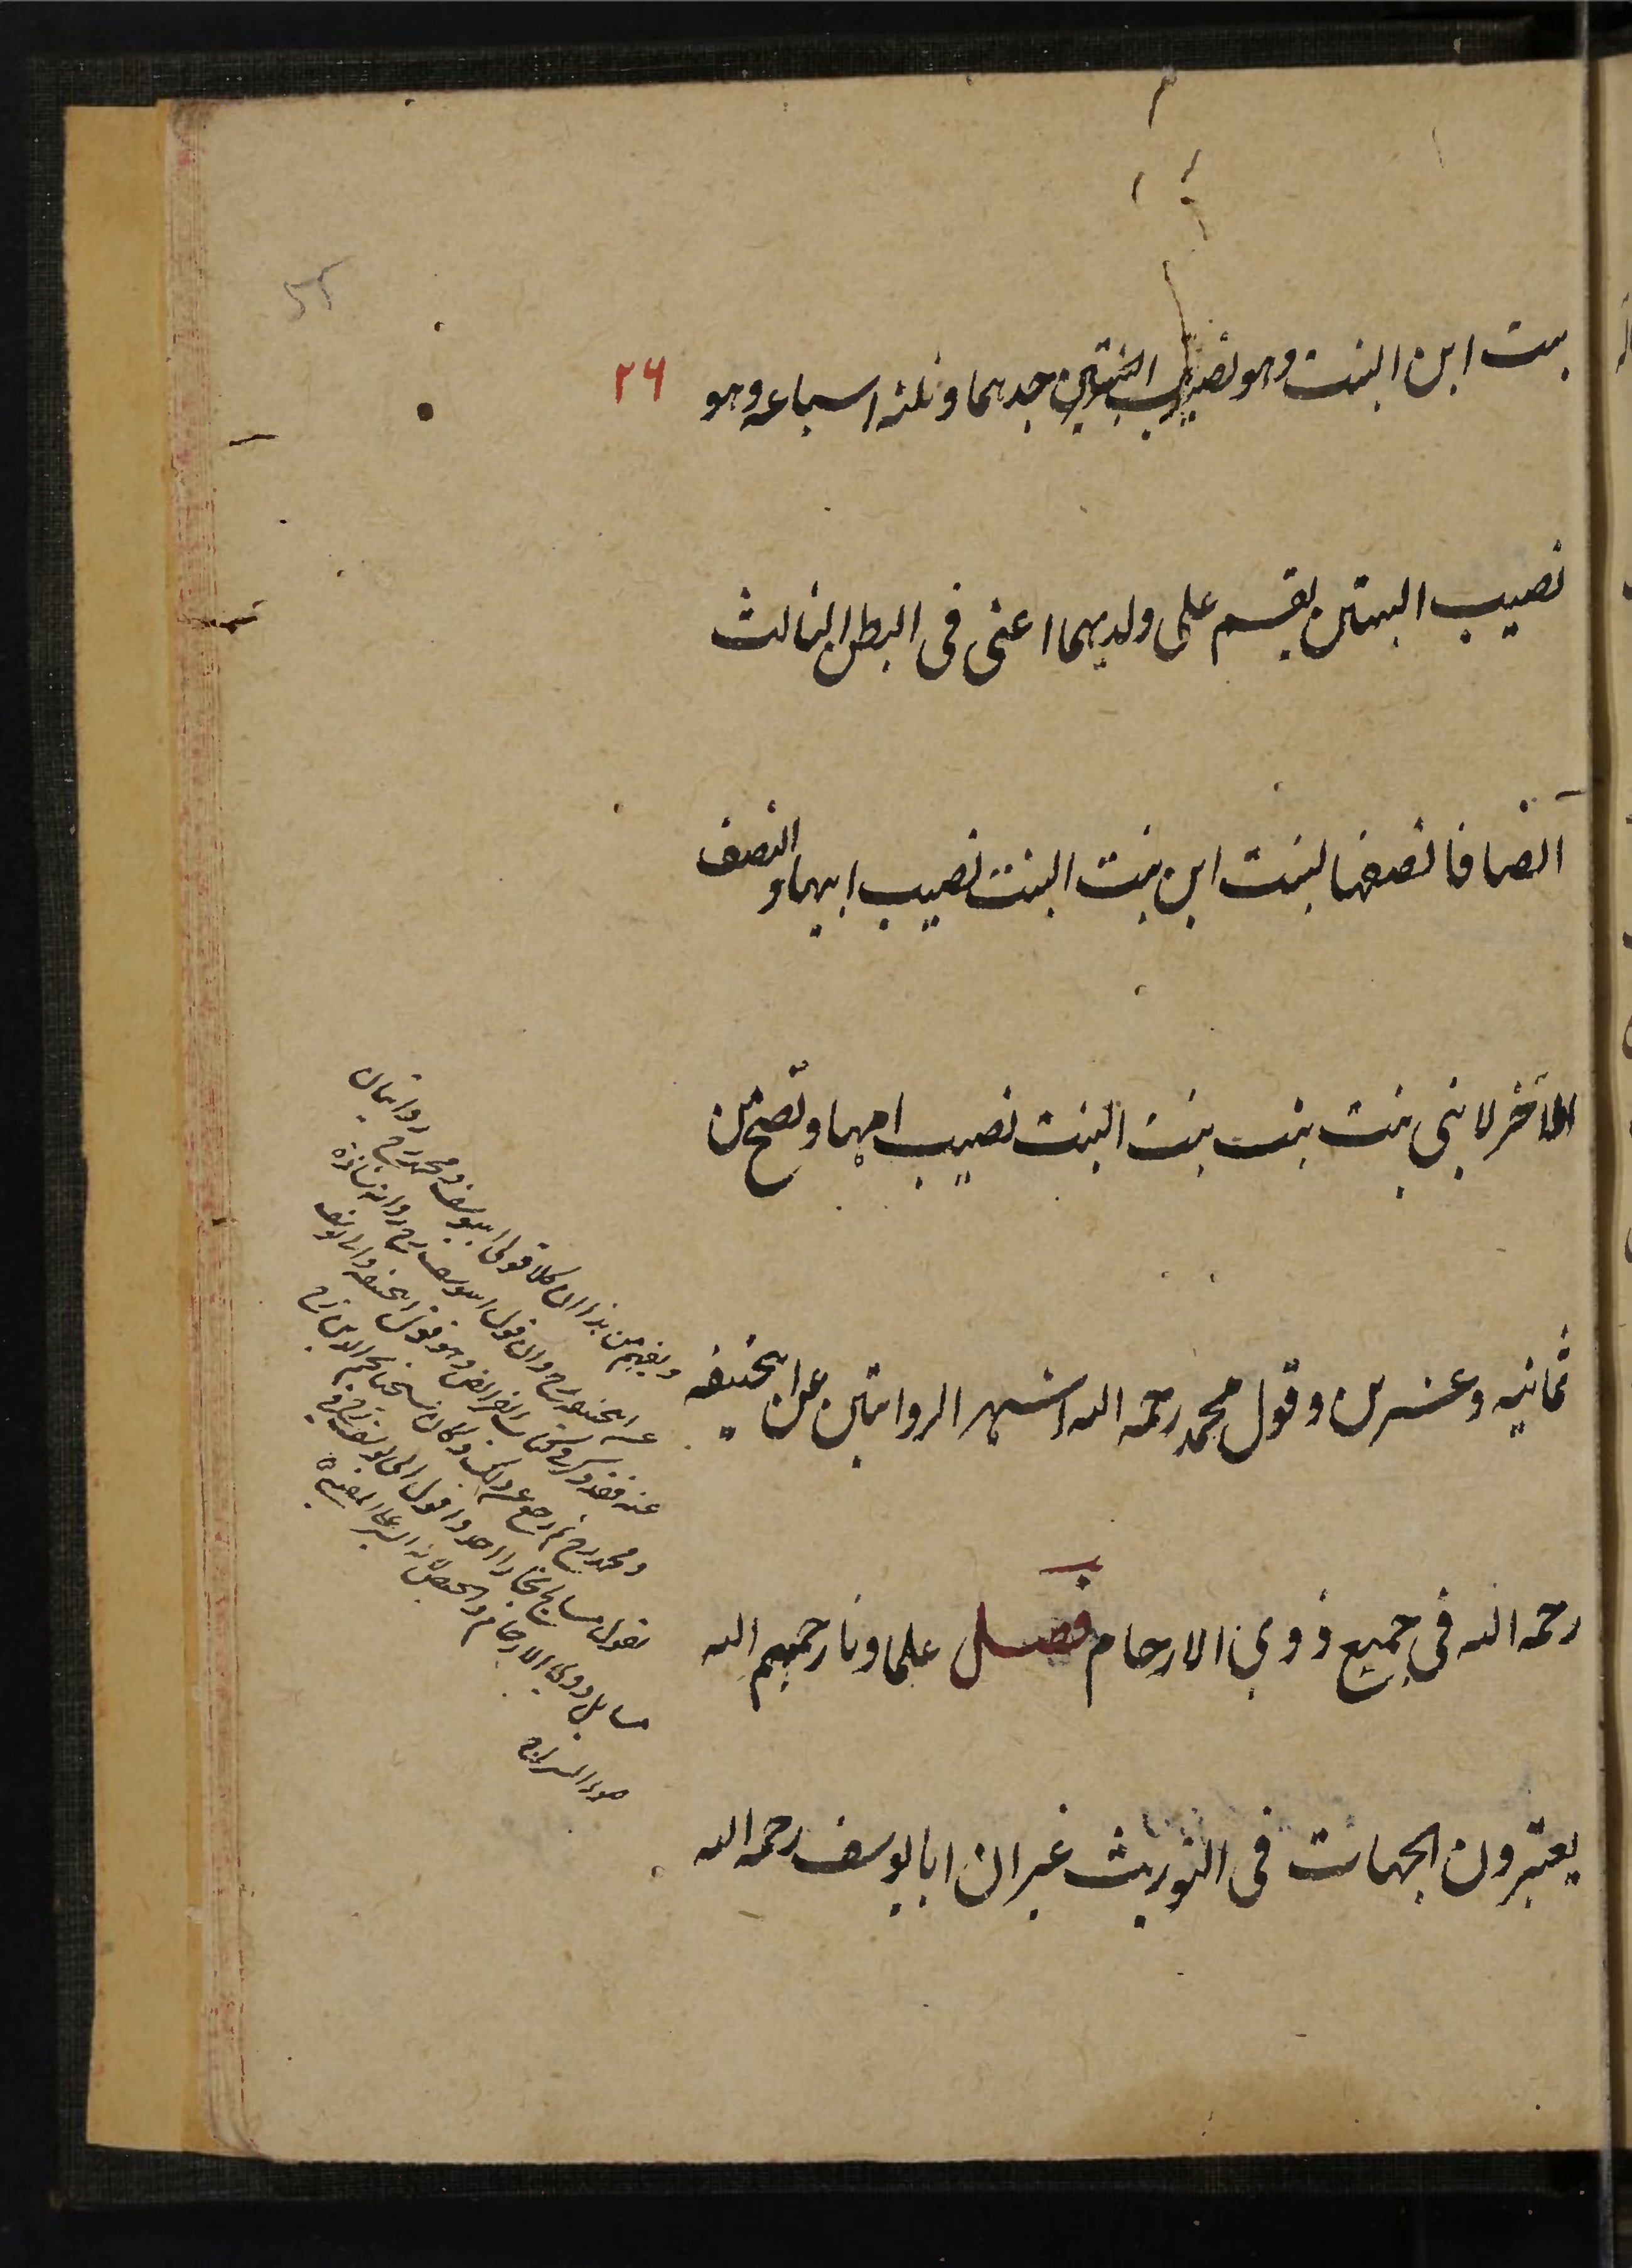 بنت ابن البنت وهو نصيب البنتين جدهما وثلثة اسباعه وهو
٢٦
نصيب البنتين يقسم على ولديهما اعنى فى البطن الثالث
انصافا نصفها لبنت ابن بنت البنت نصيب ابيها و النصف
الآخر لابنى بنت بنت بنت البنت نصيب امهما وتصح من
ثمانيه وعشرين وقول محمد رحمه الله اشهر الروايتين عن ابيحنيفه
رحمه الله فى جميع ذوي الارحام فصل علماونا رحمهم الله
يعتبرون الجهات فى التوريث غير ان ابا يوسف رحمه الله
ويفهم من هذا ان كلا قولى ابييوسف ومحمد رح روايتان
عن ابيحنيفه رح وان قول ابييوسف رح روايه شاذه
عنه فقد ذكر فى كتاب الفرائض وهو قول ابيحنيفه
ومحمد رح ثم رجع عن ذلك وكان
بقول مشايخ بخارا اخذوا بقول ابى يوسف رح فى
مسايل ذوي الارحام والحيض لانه ايسر على المفتى
ضوء السراج